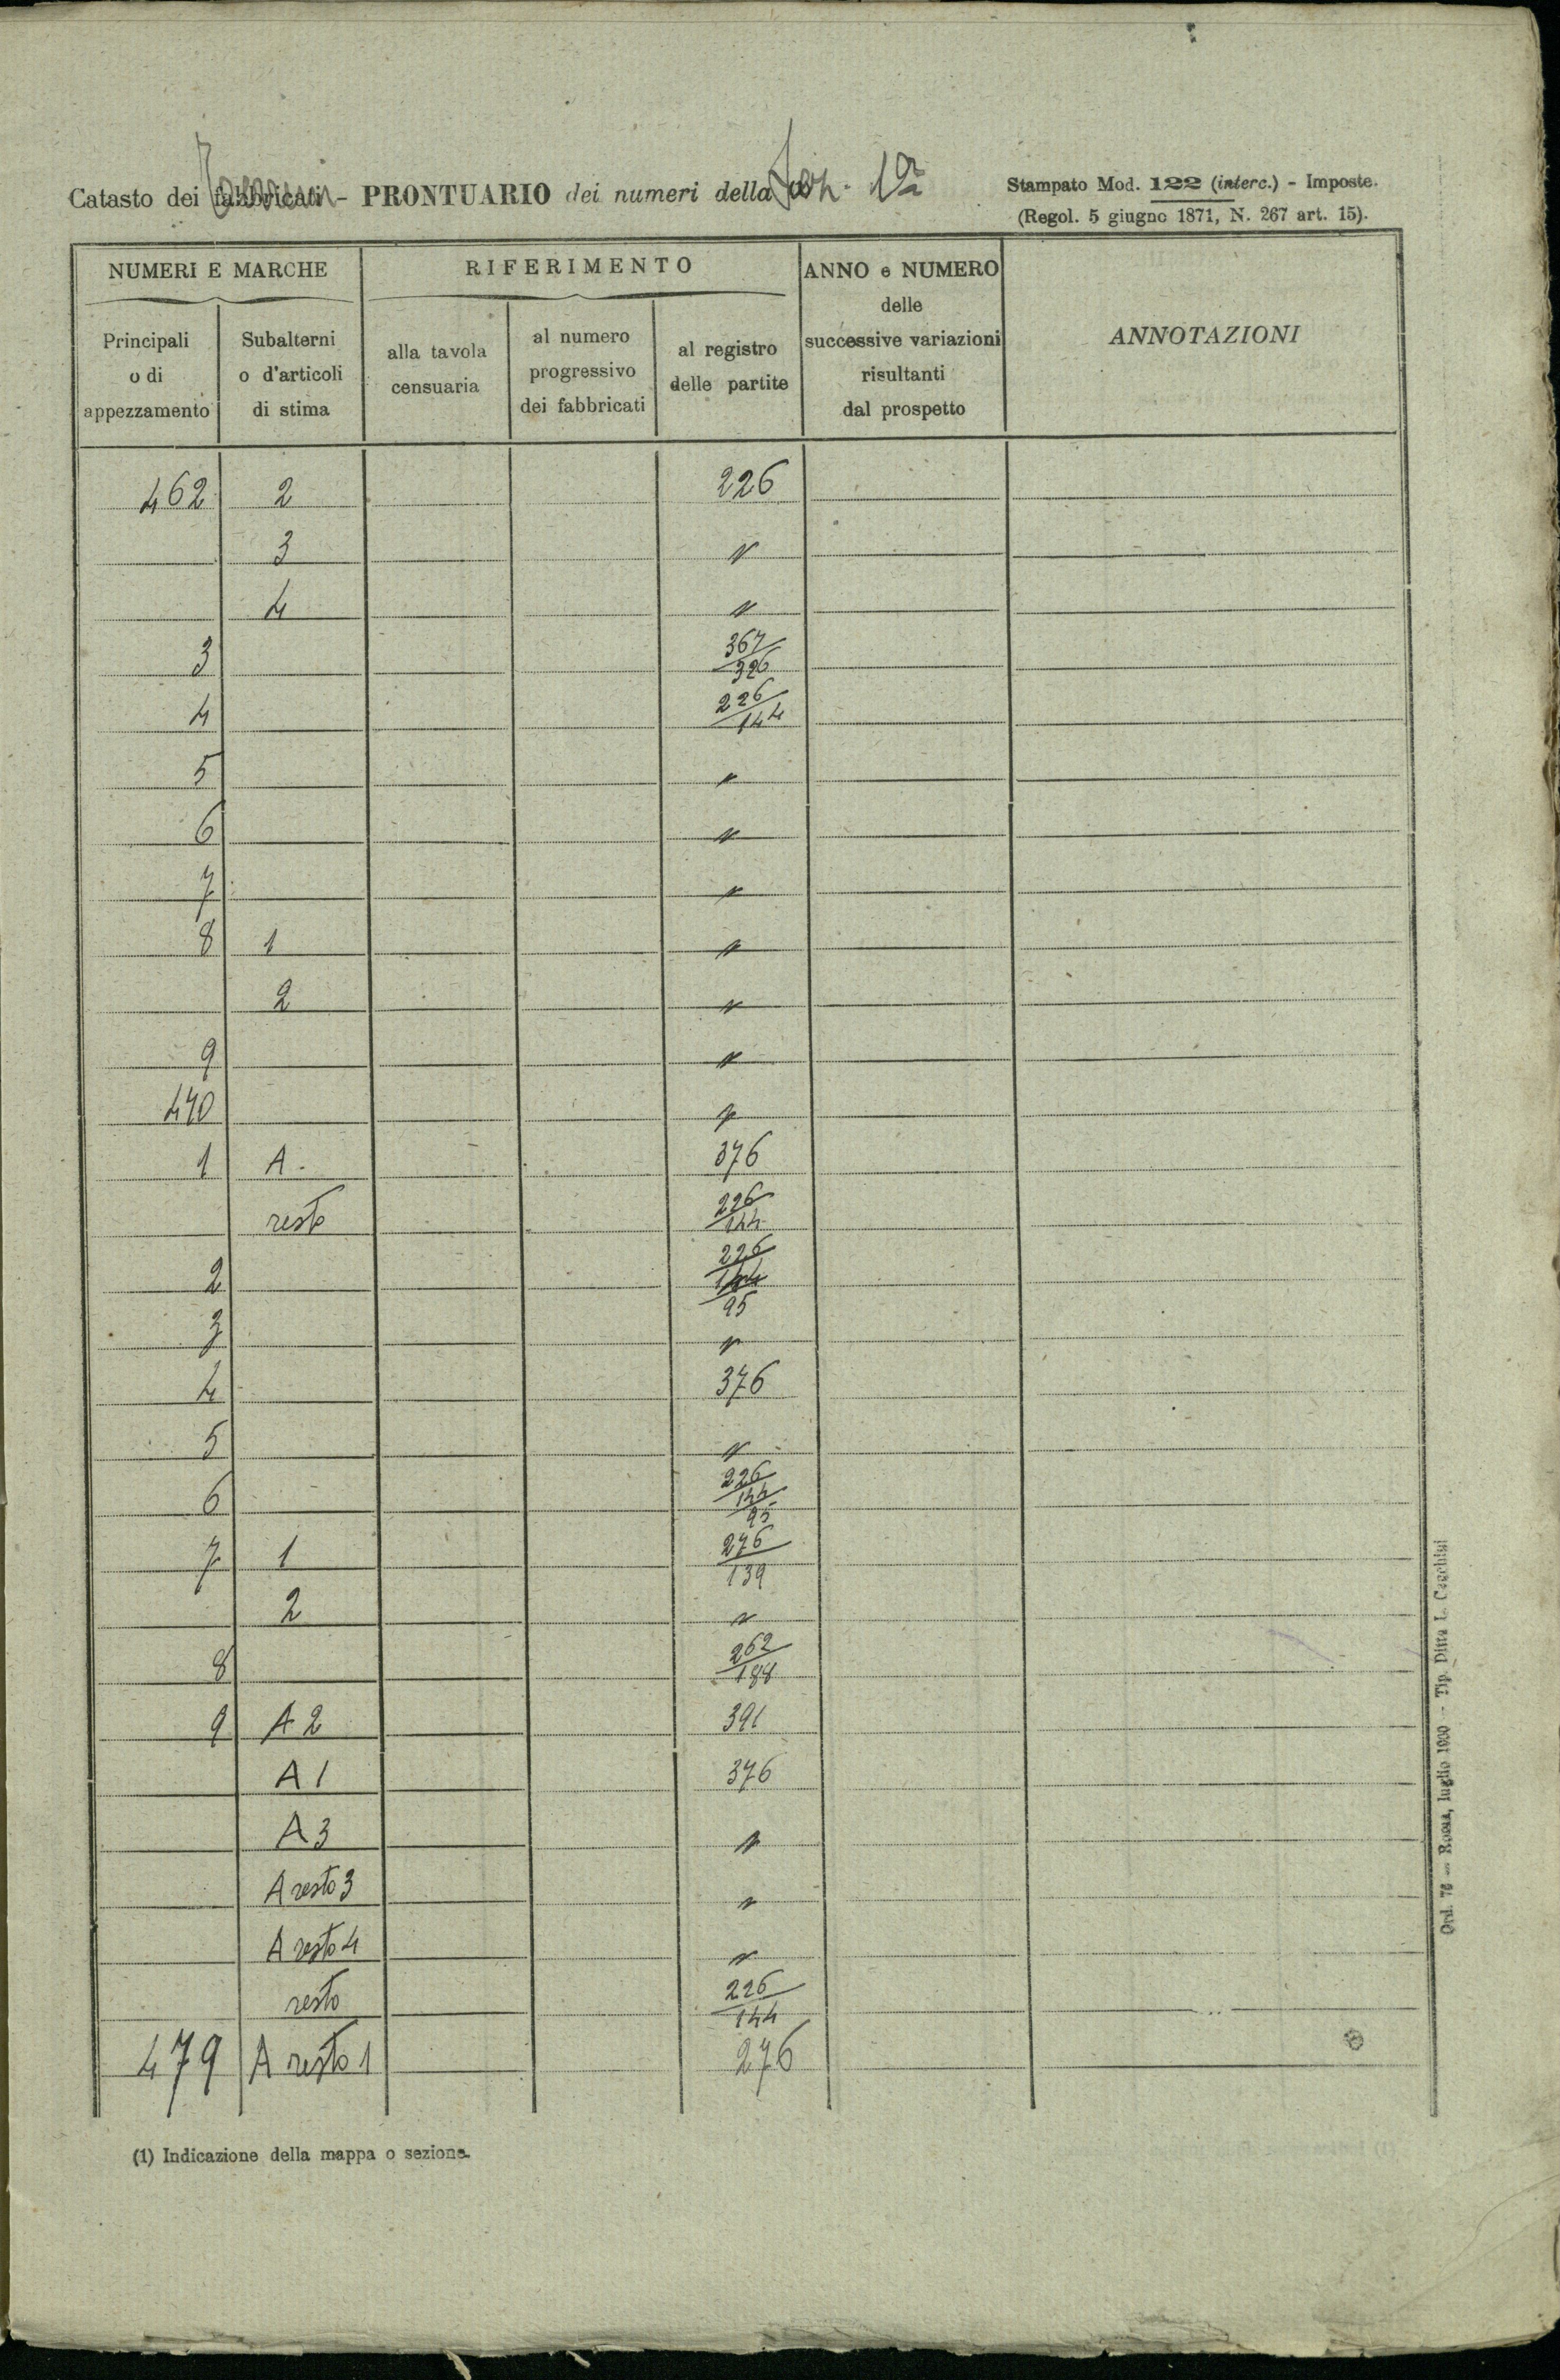 Catasto dei Terreni - PRONTUARIO dei numeri della Sez. 1ª
Stampato Mod. 122 (interc.) - Imposte.
(Regol. 5 giugno 1871, N. 267 art. 15).
NUMERI E MARCHE
RIFERIMENTO
ANNO e NUMERO
delle
successive variazioni
risultanti
dal prospetto
ANNOTAZIONI
Principali
o di
appezzamento
Subalterni
o d'articoli
di stima
alla tavola
censuaria
al numero
progressivo
dei fabbricati
al registro
delle partite
462 2 226
3 "
4 "
3 367/326
4 226/144
5 "
6 "
7 "
8 1 "
2 "
9 "
470 "
1 A. 376
resto 226/144
2 226/144/95
3 "
4 376
5 "
6 226/144/95
7 1 276/139
2 "
8 262/188
9 A 2 391
A 1 376
A 3 "
A resto 3 "
A resto 4 "
resto 226/144
479 A resto 1 276
(1) Indicazione della mappa o sezione.
Ord. 76 — Roma, luglio 1930 - Tip. Ditta L. Cecchini